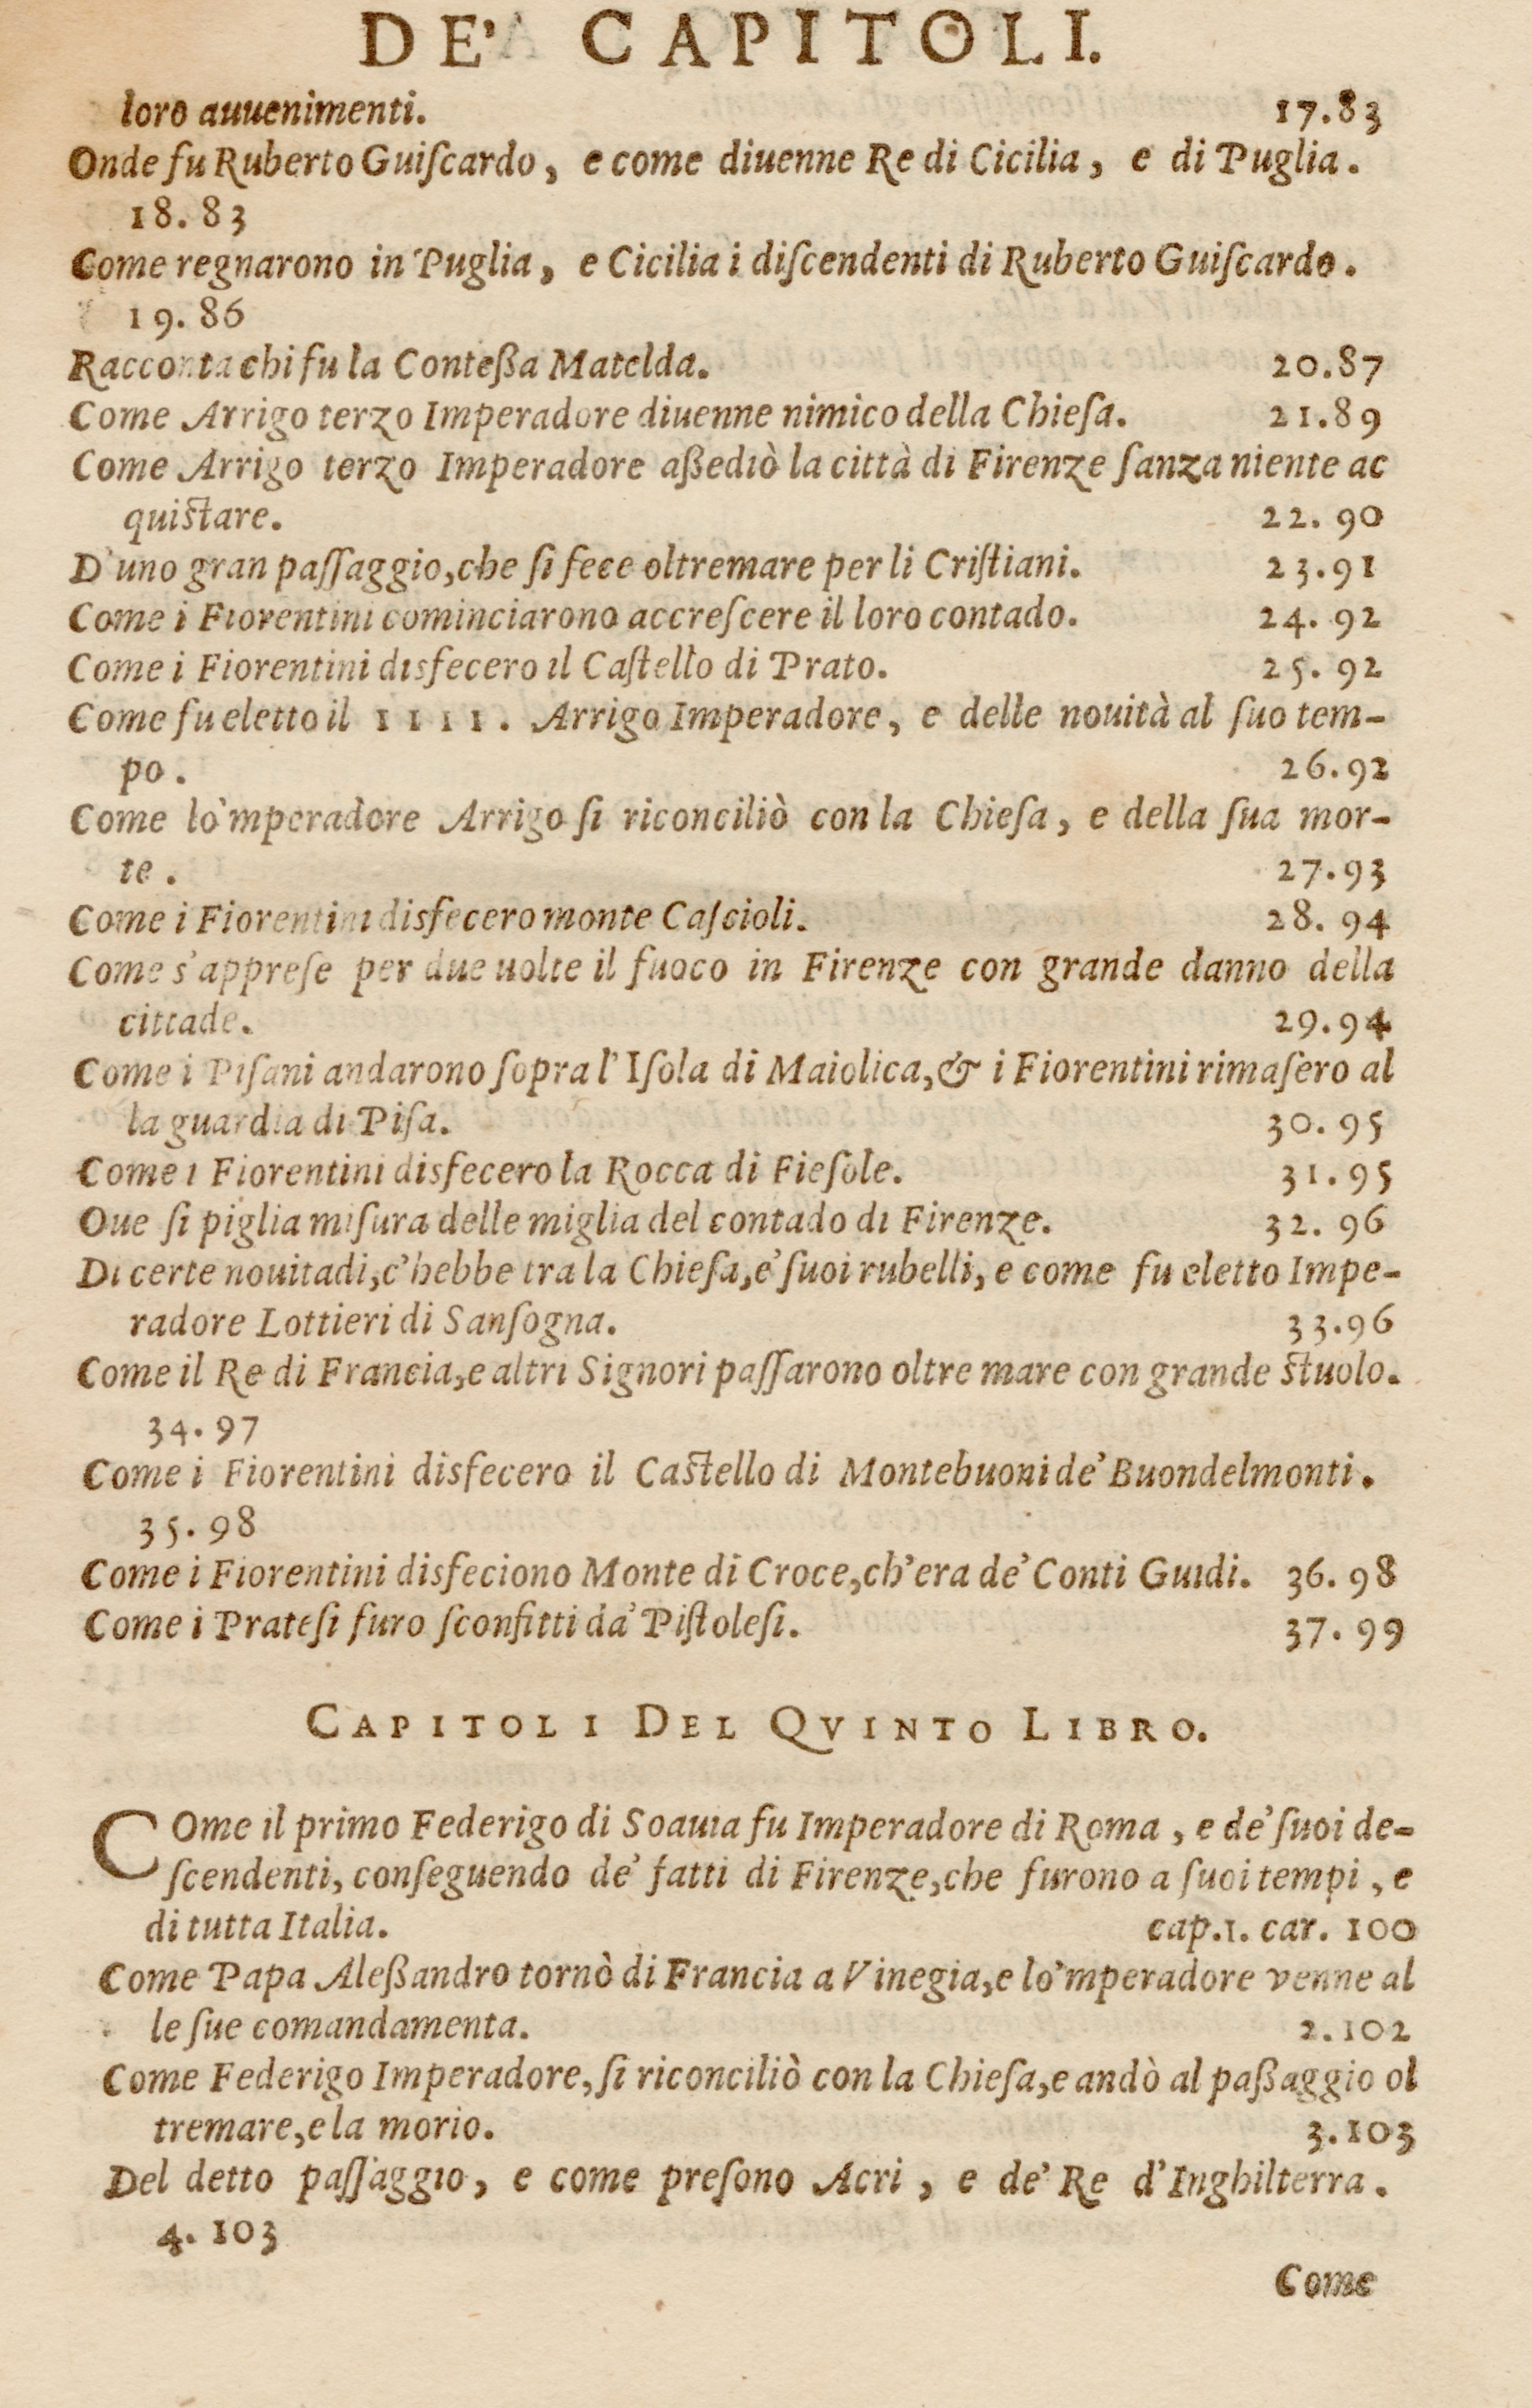 DE' CAPITOLI.
loro auuenimenti. 17.83
Onde fu Ruberto Guiſcardo, e come diuenne Re di Cicilia, e di Puglia.
18.83
Come regnarono in Puglia, e Cicilia i diſcendenti di Ruberto Guiſcardo.
19.86
Racconta chi fu la Conteßa Matelda. 20.87
Come Arrigo terzo Imperadore diuenne nimico della Chieſa. 21.89
Come Arrigo terzo Imperadore aßediò la città di Firenze ſanza niente ac
quiſtare. 22.90
D'uno gran paſſaggio, che ſi fece oltremare per li Criſtiani. 23.91
Come i Fiorentini cominciarono accreſcere il loro contado. 24.92
Come i Fiorentini disfecero il Caſtello di Prato. 25.92
Come fu eletto il IIII. Arrigo Imperadore, e delle nouità al ſuo tem-
po. 26.92
Come lo'mperadore Arrigo ſi riconciliò con la Chieſa, e della ſua mor-
te. 27.93
Come i Fiorentini disfecero monte Caſcioli. 28.94
Come s'appreſe per due uolte il fuoco in Firenze con grande danno della
cittade. 29.94
Come i Piſani andarono ſopra l'Iſola di Maiolica, & i Fiorentini rimaſero al
la guardia di Piſa. 30.95
Come i Fiorentini disfecero la Rocca di Fieſole. 31.95
Oue ſi piglia miſura delle miglia del contado di Firenze. 32.96
Di certe nouitadi, c'hebbe tra la Chieſa, e' ſuoi rubelli, e come fu eletto Impe-
radore Lottieri di Sanſogna. 33.96
Come il Re di Francia, e altri Signori paſſarono oltre mare con grande ſtuolo.
34.97
Come i Fiorentini disfecero il Caſtello di Montebuoni de' Buondelmonti.
35.98
Come i Fiorentini disfeciono Monte di Croce, ch'era de' Conti Guidi. 36.98
Come i Prateſi furo ſconfitti da' Piſtoleſi. 37.99
CAPITOLI DEL QVINTO LIBRO.
COme il primo Federigo di Soauia fu Imperadore di Roma, e de' ſuoi de-
ſcendenti, conſeguendo de' fatti di Firenze, che furono a ſuoi tempi, e
di tutta Italia. cap.1. car. 100
Come Papa Aleßandro tornò di Francia a Vinegia, e lo'mperadore venne al
le ſue comandamenta. 2.102
Come Federigo Imperadore, ſi riconciliò con la Chieſa, e andò al paßaggio ol
tremare, e la morio. 3.103
Del detto paſſaggio, e come preſono Acri, e de' Re d'Inghilterra.
4.103
Come